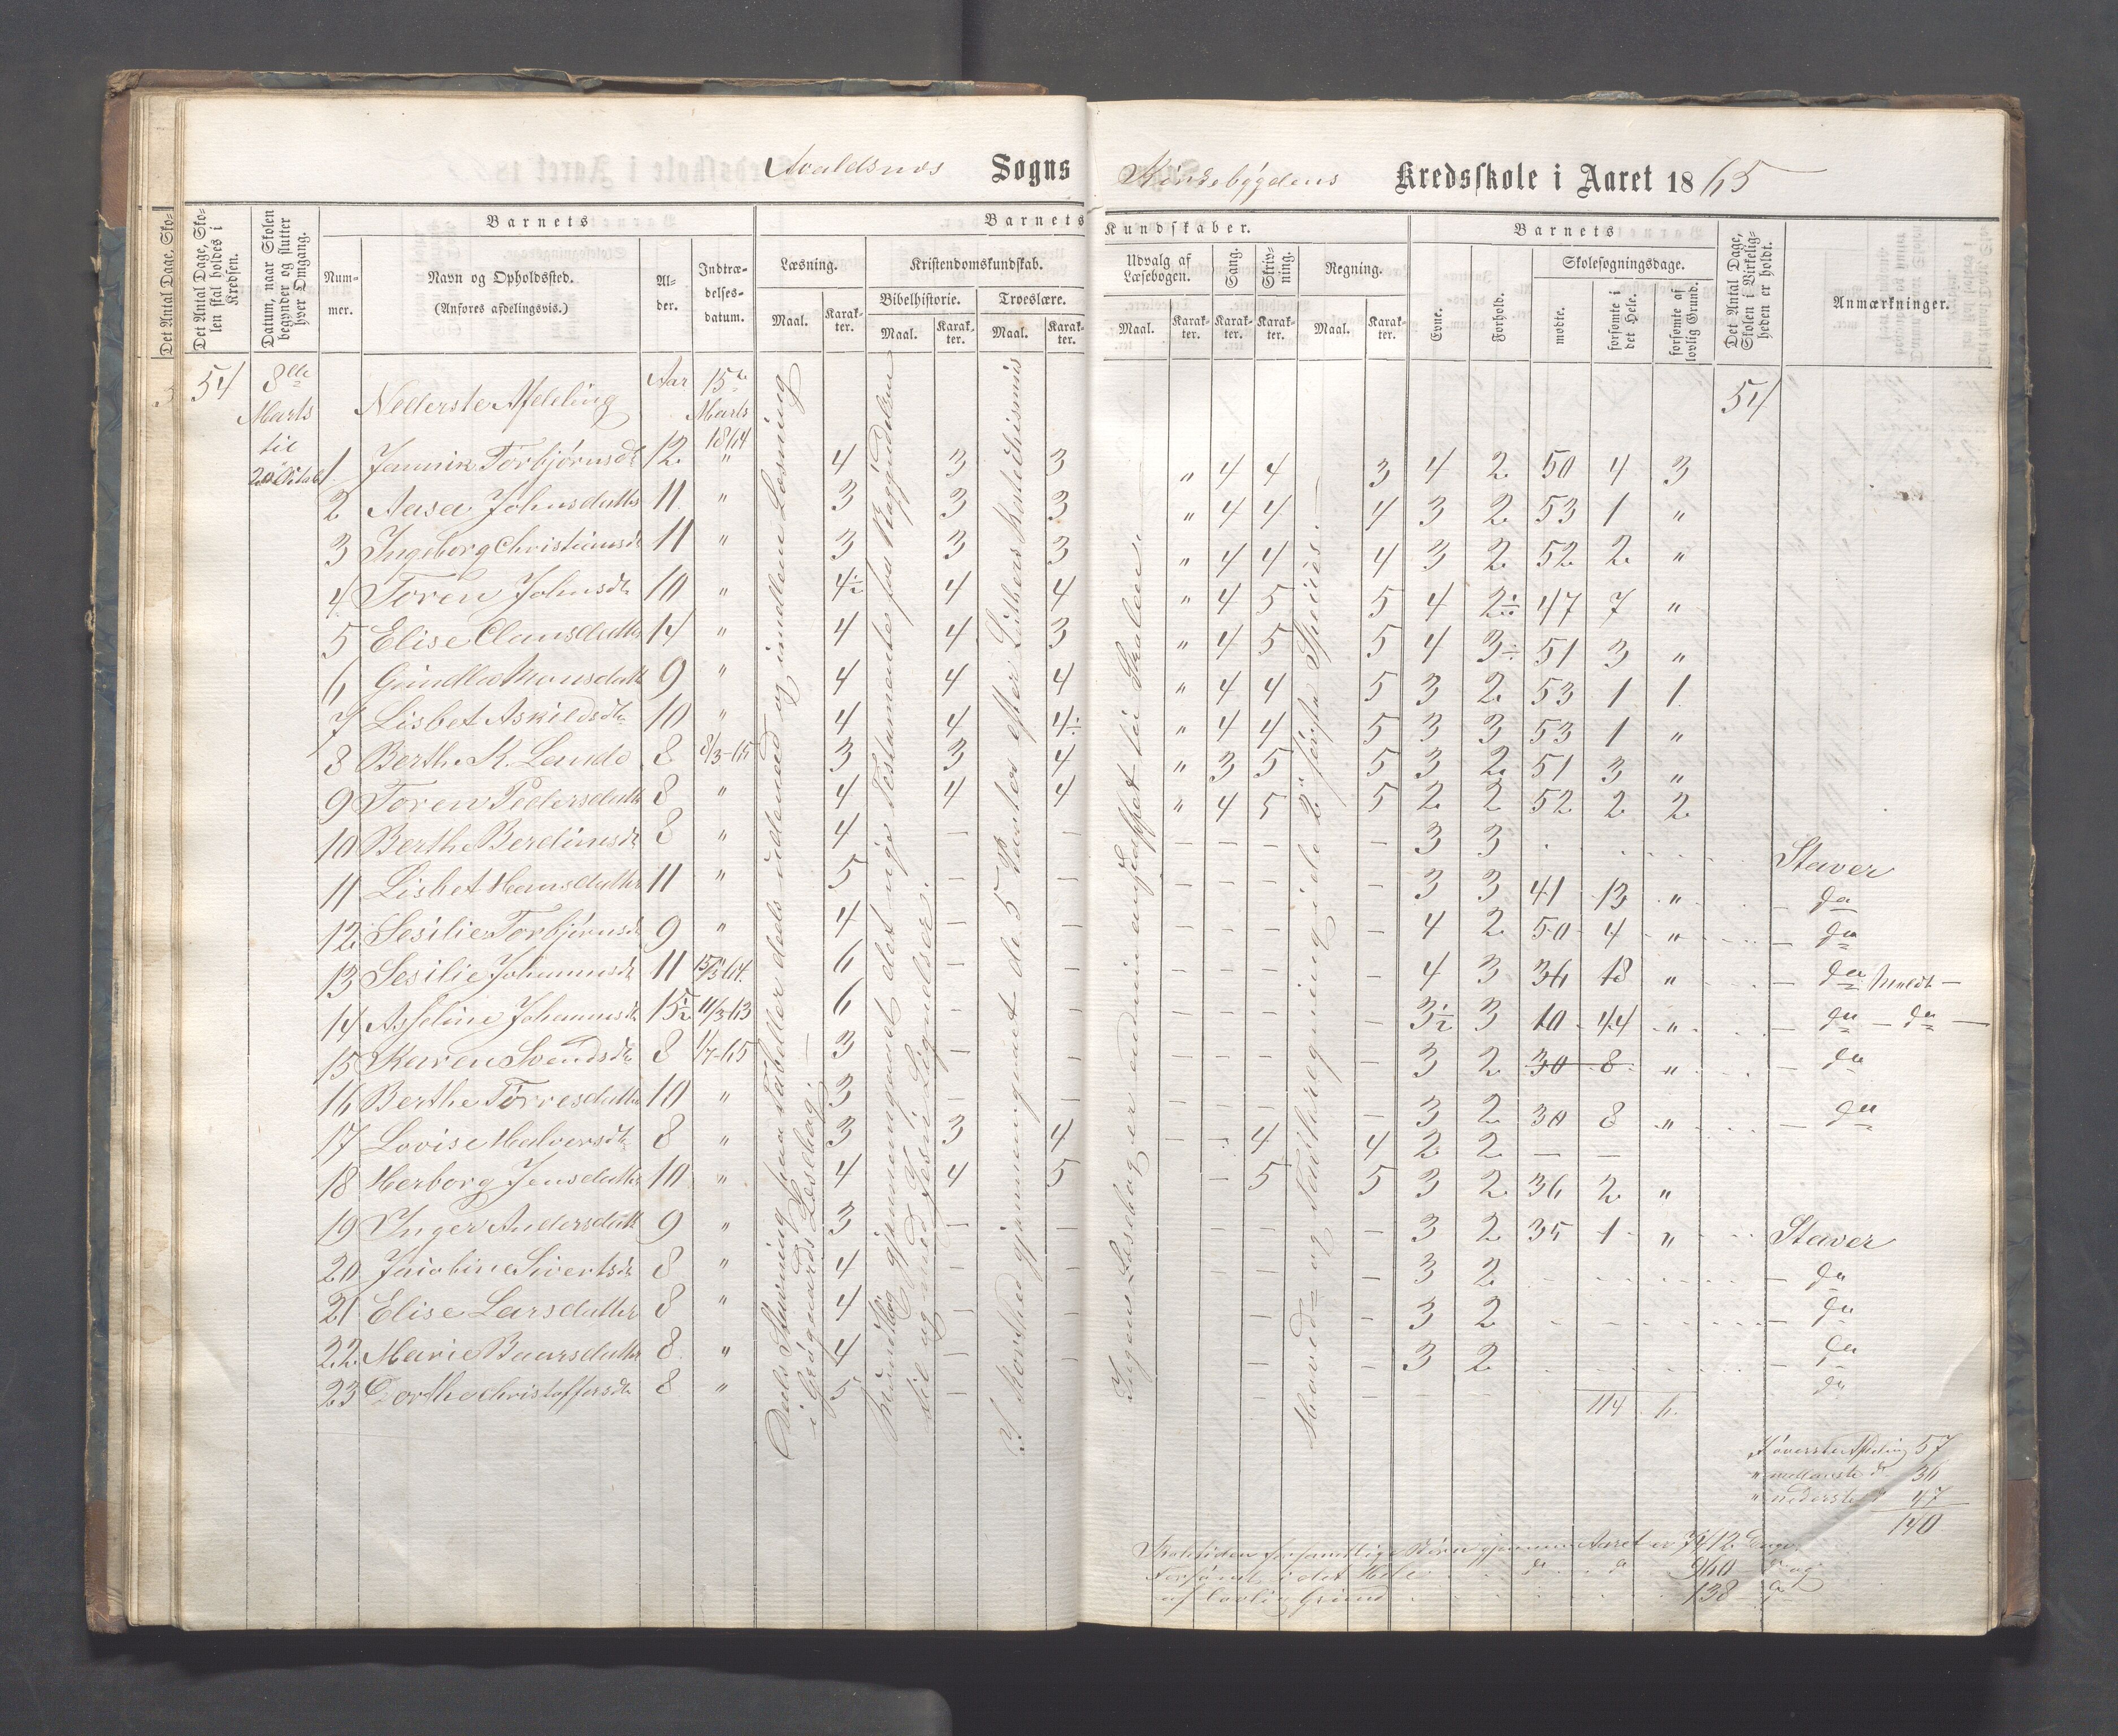 Avaldsnes Sogns Kredsskole i Aaret 1865
Det Antal Dage, Sko-
Det Antal Dage, Skolen skal holdes i Kredsen.
Datum, naar Skolen begynder og slutter hver Omgang.
Barnets
Nummer.
Navn og Opholdssted.
(Anføres afdelingsvis.)
Alder.
Indtrædelsesdatum.
Barnets Kundskaber.
Læsning.
Maal.
Karakter.
Kristendomskundskab.
Bibelhistorie.
Maal.
Karakter.
Troeslære.
Maal.
Karakter.
Udvalg af Læsebogen.
Maal.
Karakter.
Sang.
Karakter.
Skrivning.
Karakter.
Regning.
Maal.
Karakter.
Barnets
Evne.
Forhold.
Skolesøgningsdage.
mødte.
forsømte i det Hele.
forsømte af lovlig Grund.
Det Antal Dage, Skolen i Virkeligheden er holdt.
Anmærkninger.
54 8de Marts til Nederste Afdeling Aar 15de Marts 1864 54
1 Torbjørnsdt 12 " 4 3 3 " 4 4 3 4 2 50 4 3
2 Aasa Johnsdatter 11 " 3 3 3 " 4 4 4 3 2 53 1 "
3 Ingeborg Christiansdt 11 " 3 3 3 " 4 4 4 3 2 52 2 "
4 Toren Johnsdt 10 " 4½ 4 4 " 4 5 5 4 2 47 7 "
5 Elise Clausdatter 14 " 4 4 3 " 4 5 5 4 3 51 3 "
6 9 " 4 4 4 " 4 4 5 3 2 53 1 1
7 Lisbet Askildsdtr 10 " 4 4 4 " 4 4 5 3 3 53 1 "
8 Berthe K. Lande 8 8/3-65 3 3 4 " 3 5 5 3 2 51 3 "
9 Toren Pedersdatter 8 " 4 4 4 " 4 5 5 2 2 52 2 2
10 Berthe 8 " 4 — — — — — — 3 3 Staver
11 Lisbet Hansdatter 11 " 5 — — — — — — 3 3 41 13 " do
12 Sesilie Torbjørnsdt 9 " 4 — — — — — — 4 2 50 4 " do
13 Sesilie Johannesdt 11 15/3-64 6 — — — — — — 4 3 36 18 " do
14 Johannesdt 15½ 11/3-63 6 — — — — — — 3½ 3 10 44 " do — do —
15 Karen Svendsdtr 8 1/7-65 3 — — — — — — 3 2 30 8 " do
16 Berthe Tørresdatter 10 " 3 — — — — — — 3 2 30 8 " do
17 Lovise Halvorsdtr 8 " 3 3 4 — 4 4 2 2 — —
18 Herborg Jensdatter 10 " 4 4 5 — 5 5 3 2 36 2 "
19 Inger Andersdatt 9 " 3 — — — — 3 2 35 1 " Staver
20 Jacobine Sivertsdt 8 " 4 — — — — 3 2 do
21 Elise Larsdatter 8 " 4 — — — — 3 2 do
22 Marie Baarsdatter 8 " 4 — — — — 3 2 do
23 Dorthe Christoffersdtr 8 " 5 — — do
114 6
Deels Stavning paa Tabeller deels udenad og indenlæs Læsning
i Grøgaards Læsebog.
Mundtlig gjennemgaaet det nye Testamente fra Begyndelsen
til og med Jesu Lignelser.
I Korthed gjennemgaaet de 5 Parter efter Luthers Katekismus
Ingen Læsebog er endnu anskaffet til Skolen.
Hoved- og Tavleregning i de 2 første Species.
I øverste Afdeling 57
" mellemste do 36
" nederste do 47
140
Skoletiden for samtlige Børn gjennem Aaret er 7412 Dage.
Forsømt i det Hele do do 960 do og
af lovlig Grund 138 do